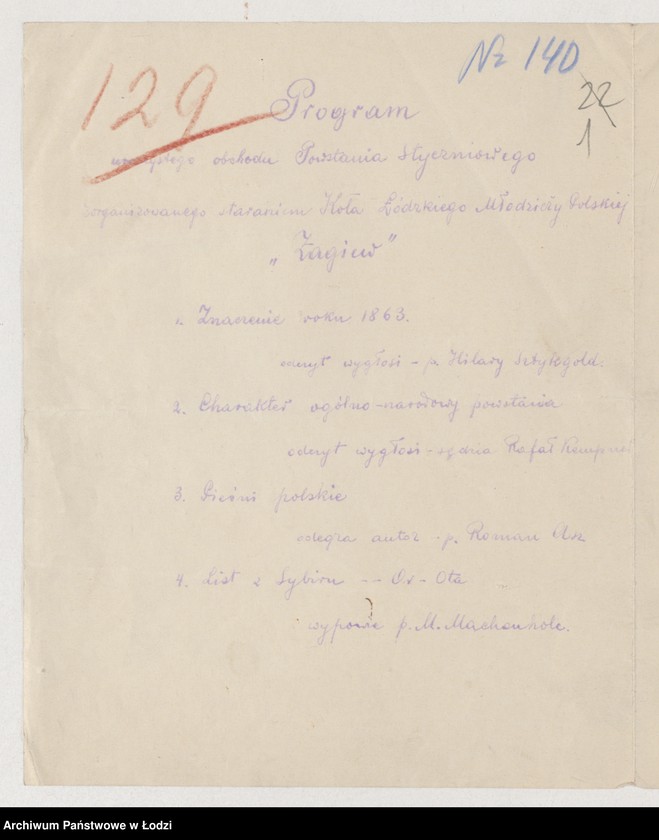 129
Nr 140
22
1
Program
uroczystego obchodu Powstania Styczniowego
zorganizowanego staraniem Koła Łódzkiego Młodzieży Polskiej
„Żagiew”
1. Znaczenie roku 1863.
odczyt wygłosi – p. Hilary Sztykgold.
2. Charakter ogólno-narodowy powstania
odczyt wygłosi – sędzia Rafał
3. Pieśni polskie
odegra autor – p. Roman
4. List z Sybiru -- Or-Ota
wypowie p. M. Machenholc.
Archiwum Państwowe w Łodzi